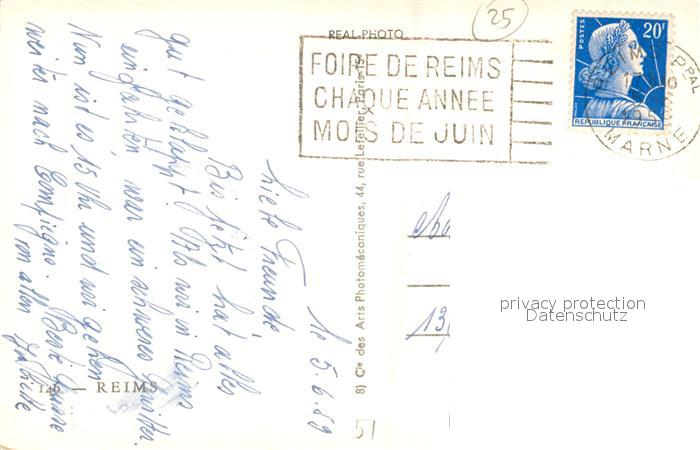 25
REAL-PHOTO
FOIRE DE REIMS
CHAQUE ANNEE
MOIS DE JUIN
POSTES
20F
REPUBLIQUE FRANÇAISE
PPAL
MARNE
8) Cie des Arts Photomécaniques, 44, rue Letellier, Paris-15
1e 5.6.59
Liebe Freunde
Bis jetzt hat alles
gut geklappt. Als wir in Reims
einfahren war ein schweres Gewitter.
Nun ist es 15 Uhr und wir gehen
weiter nach Compiegne. Beste Grüsse
von allen
146 — REIMS
13,
51
privacy protection
Datenschutz